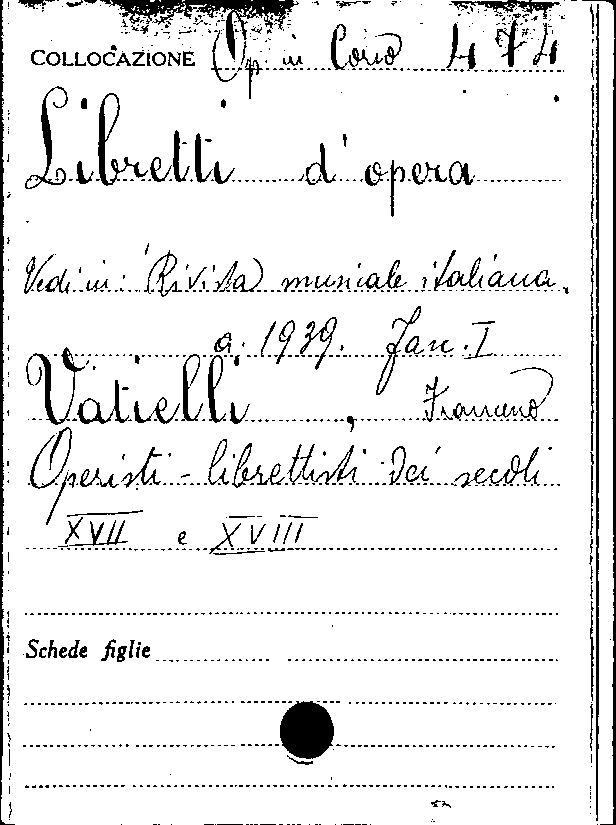 COLLOCAZIONE Op. in Corso 474
Libretti d'opera
Vedi in: Rivista musicale italiana.
a. 1939. Fasc. I
Vatielli, Francesco
Operisti-librettisti dei secoli
XVII e XVIII
Schede figlie